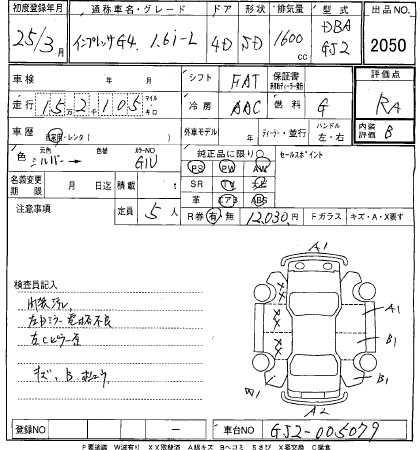 初度登録年月 通称車名・グレード ドア 形状 排気量 型式 出品NO.
25/3月 インプレッサG4 1.6i-L 4D SD 1600cc DBA GJ2 2050
車検 年 月 シフト FAT 保証書 評価点
走行 15万2千105 マイル・キロ 冷房 AAC 燃料 G RA
車歴 自家用・レンタ( ) 外車モデル 年 ディーラー・並行 ハンドル 左・右 内装評価 B
色 元色 シルバー → 色替 カラーNO G1U 純正品に限り○ セールスポイント
PS PW AW
名義変更期限 月 日迄 積載 t SR TV
革 エアB ABS
注意事項 定員 5人 R券 有 無 12,030円 Fガラス キズ・A・X要す
検査員記入
左Dミラー電格不良
左Cピラー歪
キズ、B、
A1
A1
B1
B1
A2
XX
XX
登録NO ー 車台NO GJ2-005079
P要塗装 W波有り XX取替済 A線キズ Bヘコミ Sさび X要交換 C腐食